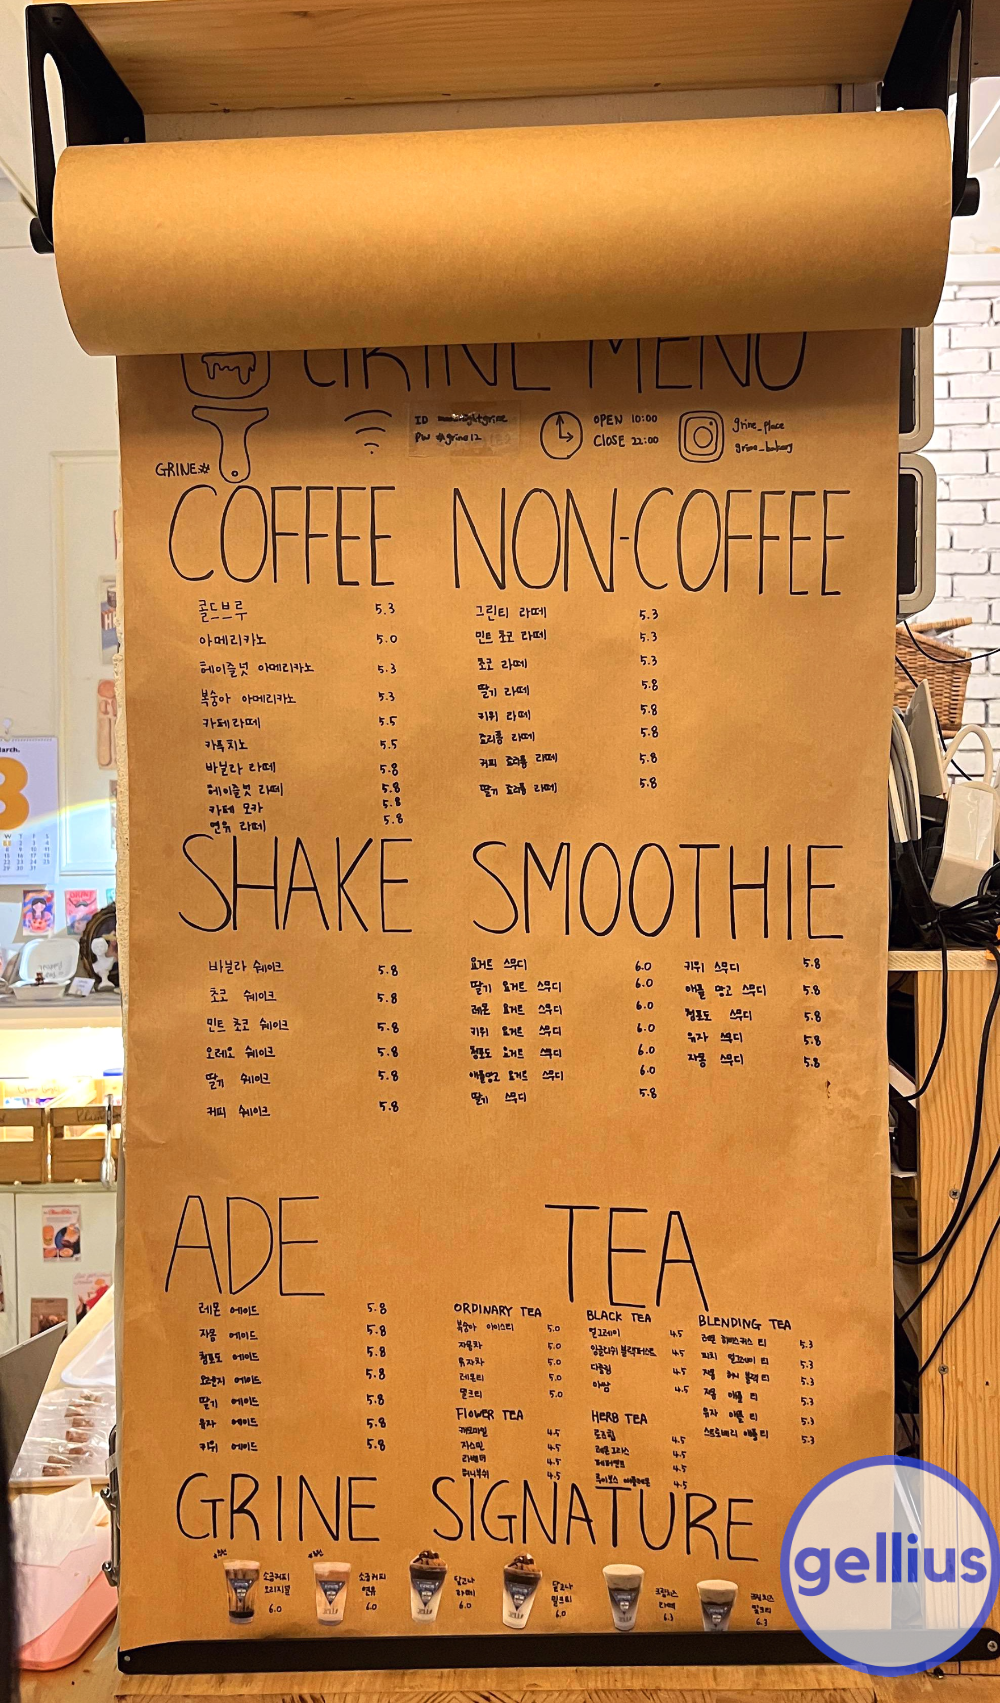 GRINE MENU
GRINE
ID
PW @grine12
OPEN 10:00
CLOSE 22:00
grine_place
grine_bakery
COFFEE
콜드브루 5.3
아메리카노 5.0
헤이즐넛 아메리카노 5.3
복숭아 아메리카노 5.3
카페라떼 5.5
카푸치노 5.5
바닐라 라떼 5.8
헤이즐넛 라떼 5.8
카페 모카 5.8
연유 라떼 5.8
NON-COFFEE
그린티 라떼 5.3
민트 초코 라떼 5.3
초코 라떼 5.3
딸기 라떼 5.8
키위 라떼 5.8
오리퐁 라떼 5.8
커피 오리퐁 라떼 5.8
딸기 오리퐁 라떼 5.8
SHAKE
바닐라 쉐이크 5.8
초코 쉐이크 5.8
민트 초코 쉐이크 5.8
오레오 쉐이크 5.8
딸기 쉐이크 5.8
커피 쉐이크 5.8
SMOOTHIE
요거트 스무디 6.0
딸기 요거트 스무디 6.0
레몬 요거트 스무디 6.0
키위 요거트 스무디 6.0
청포도 요거트 스무디 6.0
애플망고 요거트 스무디 6.0
딸기 스무디 5.8
키위 스무디 5.8
애플 망고 스무디 5.8
청포도 스무디 5.8
유자 스무디 5.8
자몽 스무디 5.8
ADE
레몬 에이드 5.8
자몽 에이드 5.8
청포도 에이드 5.8
오렌지 에이드 5.8
딸기 에이드 5.8
유자 에이드 5.8
키위 에이드 5.8
TEA
ORDINARY TEA
복숭아 아이스티 5.0
자몽차 5.0
유자차 5.0
레몬티 5.0
밀크티 5.0
BLACK TEA
얼그레이 4.5
잉글리쉬 블랙퍼스트 4.5
다즐링 4.5
아쌈 4.5
BLENDING TEA
레몬 히비스커스 티 5.3
피치 얼그레이 티 5.3
자몽 허니 블랙 티 5.3
자몽 애플 티 5.3
유자 애플 티 5.3
스트로베리 애플 티 5.3
FLOWER TEA
캐모마일 4.5
자스민 4.5
라벤더 4.5
허니부쉬 4.5
HERB TEA
로즈힙 4.5
레몬그라스 4.5
페퍼민트 4.5
루이보스 애플레몬 4.5
GRINE SIGNATURE
소금커피
오리지널
6.0
소금커피
연유
6.0
달고나
라떼
6.0
달고나
밀크티
6.0
크림치즈
라떼
6.3
크림치즈
밀크티
6.3
gellius